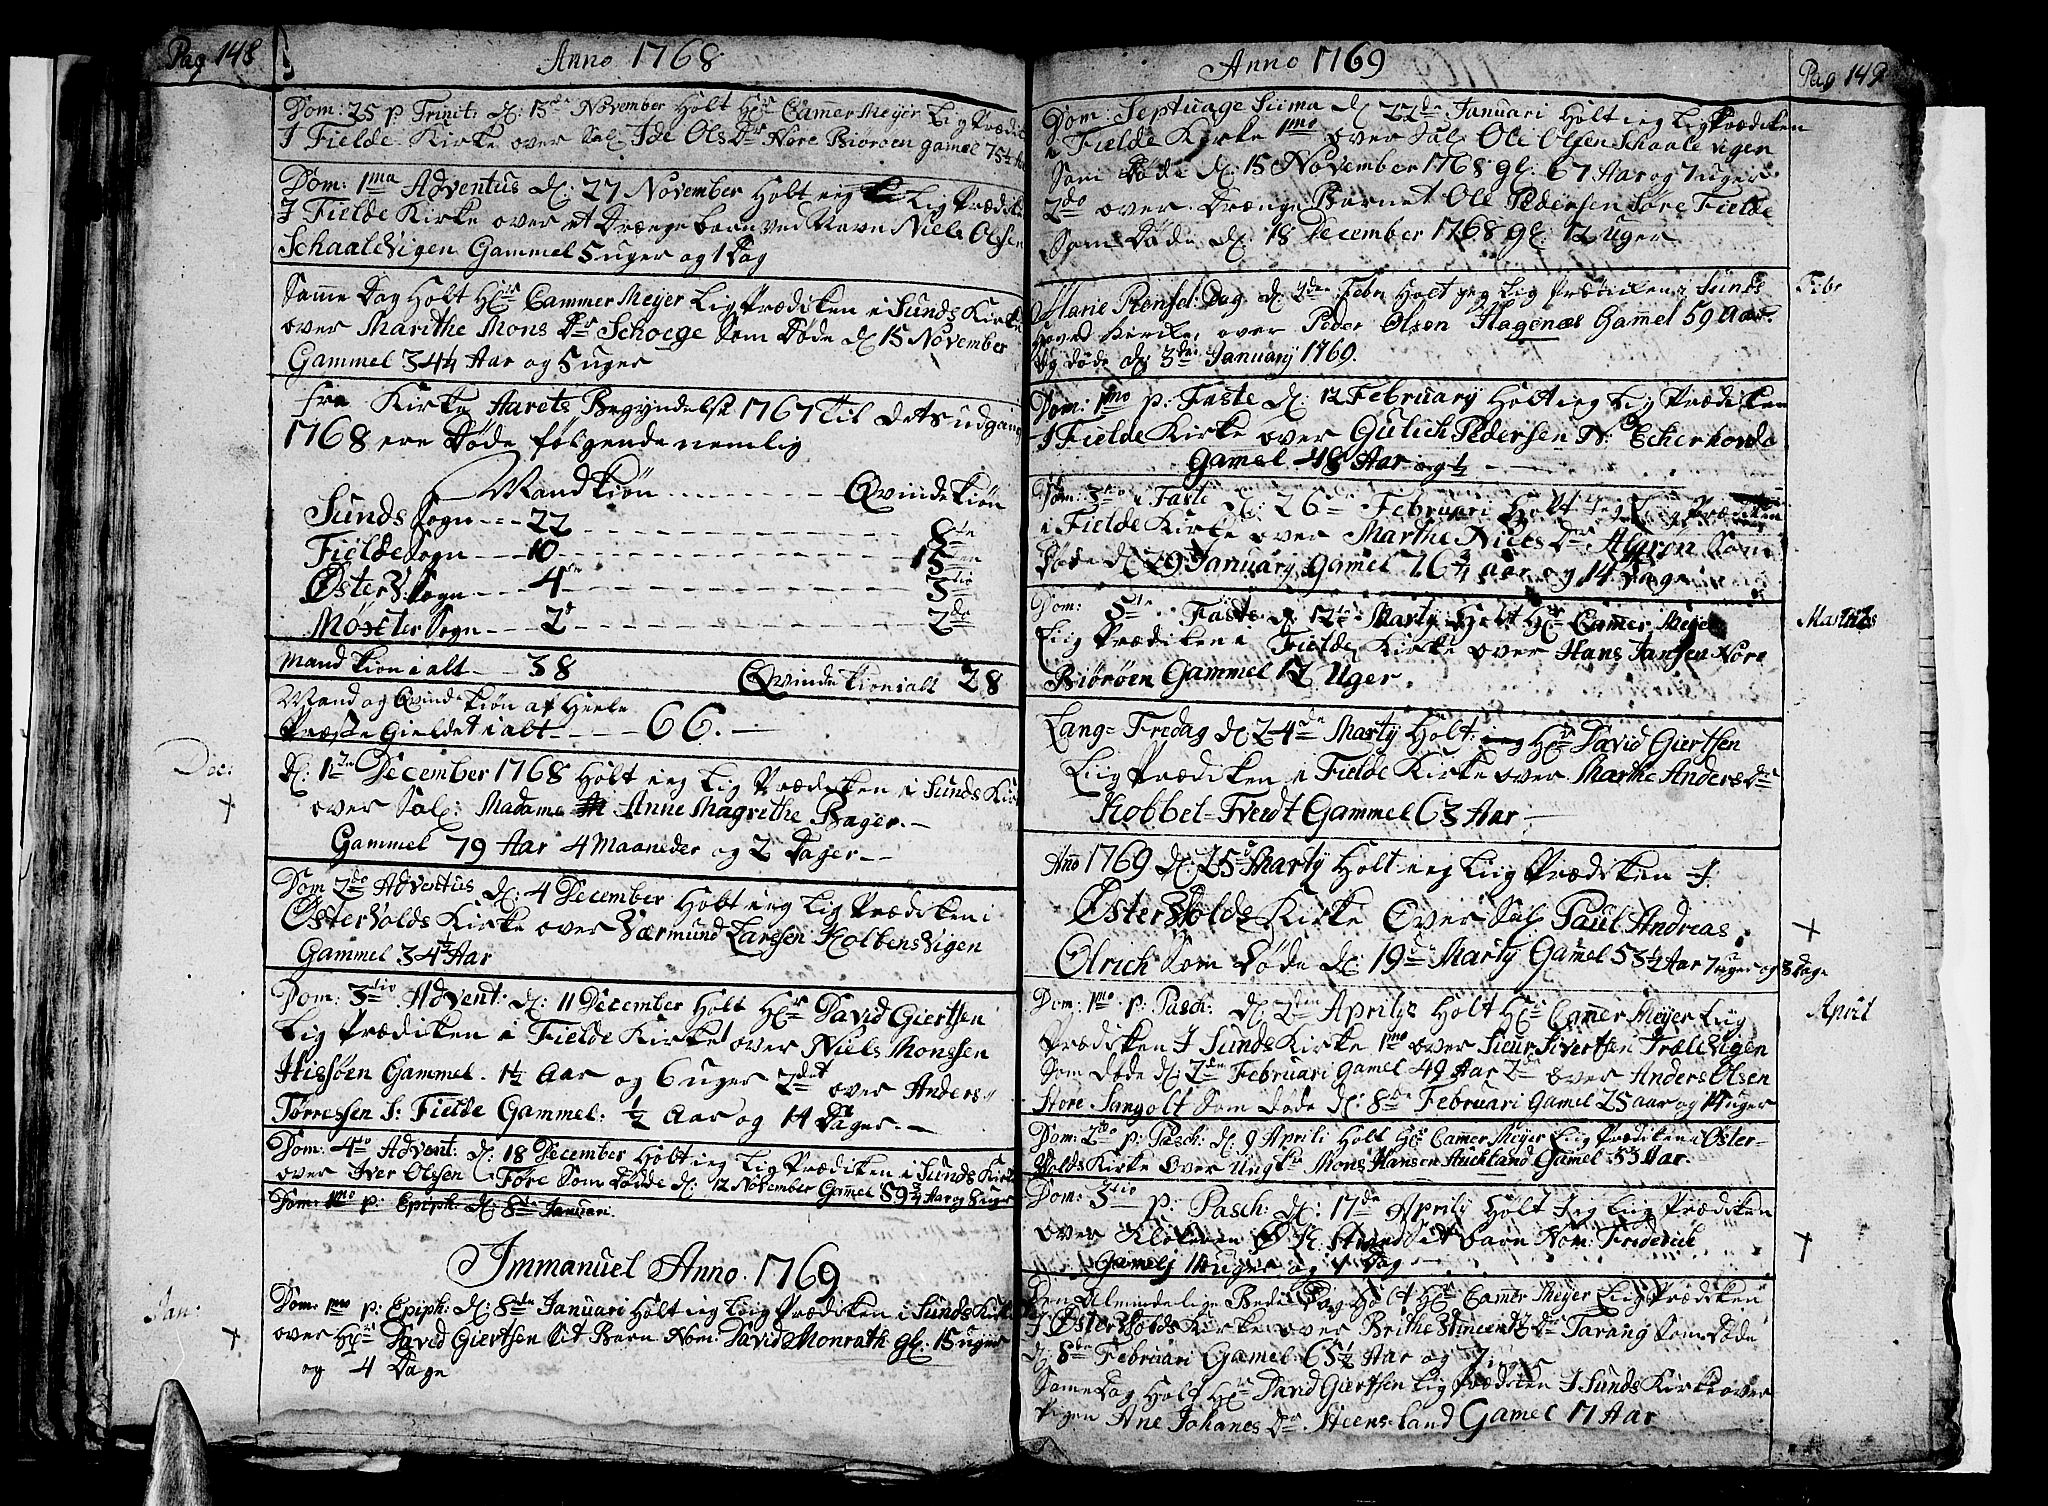 Pag 148
Anno 1768
Dom: 25 p. Trinit: d: 13de November holt Hr Cammer Meyer Lig Prædik
I Fielde Kirke over Sal. Ide Ols Dr Nore Biöröen gamel 75½ Aar
Dom: 1ma Adventus d: 27 November holt ieg Lig Prædik
I Fielde Kirke over et Drænge barn ved Navn Niels Olsen
Schaalevigen Gammel 5 uger og 1 Dag
Samme Dag holt Hr Cammer Meyer Lig Prædiken i Sunds Kirke
over Marithe Mons Dr Schoege Som Døde d 15 November
Gammel 34¼ Aar og 5 uger
fra Kirke Aarets Begyndelse 1767 til dets udgang
1768 ere Døde følgende nemlig
Mandkiön Qvindekiön
Sunds Sogn 22 8te
Fielde Sogn 10 15
ØsterV: Sogn 4re 3tio
Møster Sogn 2 2de
Mandkiön i alt 38 Qvindekiön i alt 28
Mand og Qvindekiön af Heele
Præste Gieldet i alt 66.
Dec:
d: 1te December 1768 holt ieg Lig Prædiken i Sunds Kir
over Sal: Madame Anne Magrethe Bager.
Gammel 79 Aar 4 Maaneder og 2 Dager
Dom 2do Adventus d: 4 December holt ieg Lig Prædiken i
Østervolds Kirke over Værmund Larssen Kolbensvigen
Gammel 34½ Aar
Dom: 3tio Advent: d: 11 December holt Hr David Giertsen
Lig Prædiken i Fielde Kirke over Niels Monssen
Hissöen Gammel. 1½ Aar og 6 uger 2det over Anders
Torressen S: Fielde Gammel: ½ Aar og 14 Dager.
Dom: 4to Advent: d: 18 December holt ieg Lig Prædiken i Sunds Kirk
over Iver Olsen Tøre Som Døde d: 12 November Gamel 89¾ Aar og 8 uger
Dom: 1mo p: Epiph: d: 8de Januari.
Immanuel Anno 1769
Jan:
Dom: 1mo p: Epiph: d: 8de Januari holt ieg Liig Prædiken i Sunds Kirke
over Hr David Giertsen Sit Barn Nom: David Monrath gl: 15 uger
og 4 Dage
Anno 1769
Pag 149
Dom: Septuage Siima d 22de Januari holt ieg Lig Prædiken
i Fielde Kirke 1mo over Sal: Ole Olsen Schaale vigen
Som Døde d: 15 November 1768 gl: 67 Aar og 7 uger
2do over Drænge Barnet Ole Pedersen Søre Fielde
Som Døde d: 18 December 1768 gl: 12 Uger
Febr
Marie Rensel: Dag d: 2den Febr holt ieg Lig Prædiken i Sunds
Hoved Kirke over Peder Olsen Hagenæs Gammel 59 Aar
og døde d 3de January 1769.
Dom: 1mo p: Faste d: 12 February holt ieg Lig Prædiken
I Fielde Kirke over Gulich Pedersen N: Echerhovde
Gamel 48 Aar og ½
Dom: 3tio i Faste d: 26 Februari holt Jeg Lig Prædiken
i Fielde Kirke over Marthe Niels Dr Algrøn Som
Døde d 29 January Gamel 76¾ Aar og 14 Dage
Martius
Dom: 5te Faste d 12te Marty holt Hr Camer Meyer
Liig Prædiken i Fielde Kirke over Hans Jansen Nore
Biöröen Gammel 12 Uger.
Lang=Fredag d 24de Marty holt: Hr David Giertsen
Liig Prædiken i Fielde Kirke over Marthe Anders Dr
Kobbel=Tvedt Gammel 63 Aar
Ano 1769 d: 25 Marty holt ieg Liig Prædiken I
Øster Volds Kirke Over Sal. Paul Andreas
Olrich Som Døde d: 19de Marty Gamel 53½ Aar 7 uger og 3 Dage
April
Dom: 1mo p: Pasch: d 2den Aprilys holt Hr Camer Meyer Liig
Prædiken I Sunds Kirke 1mo over Sieur Sivertsen Trælevigen
Som Døde d: 7de Februari gamel 49 Aar 2de over Anders Olsen
Store Sangolt Som Døde d: 8de Februari Gamel 25 aar og 14 uger
Dom: 2do p: Pasch: d 9 Aprili holt Hr Camer Meyer Liig Prædiken i Øster=
Volds Kirke Over Ungkr Mons Hansen Auchland Gamel 33 Aar.
Dom: 3tio p: Pasch: d: 17de Aprily holt Jeg Liig Prædiken
over Klokeren Strand Sit barn Nom: Friderick
Gamel 14 uger og 1 Dag
Den Almindelige Bede Dag holt Hr Camer Meyer Liig Prædiken
I Øster Volds Kirke over Brithe Vincentz Dr Tarang Som Døde
d: 8de Februari Gamel: 65½ Aar og 7 uger
Same Dag holt Hr David Giertsen Lig Prædiken I Sunds Kirke over
Pigen Ane Johanes Dr Steens=land Gamel 17 Aar